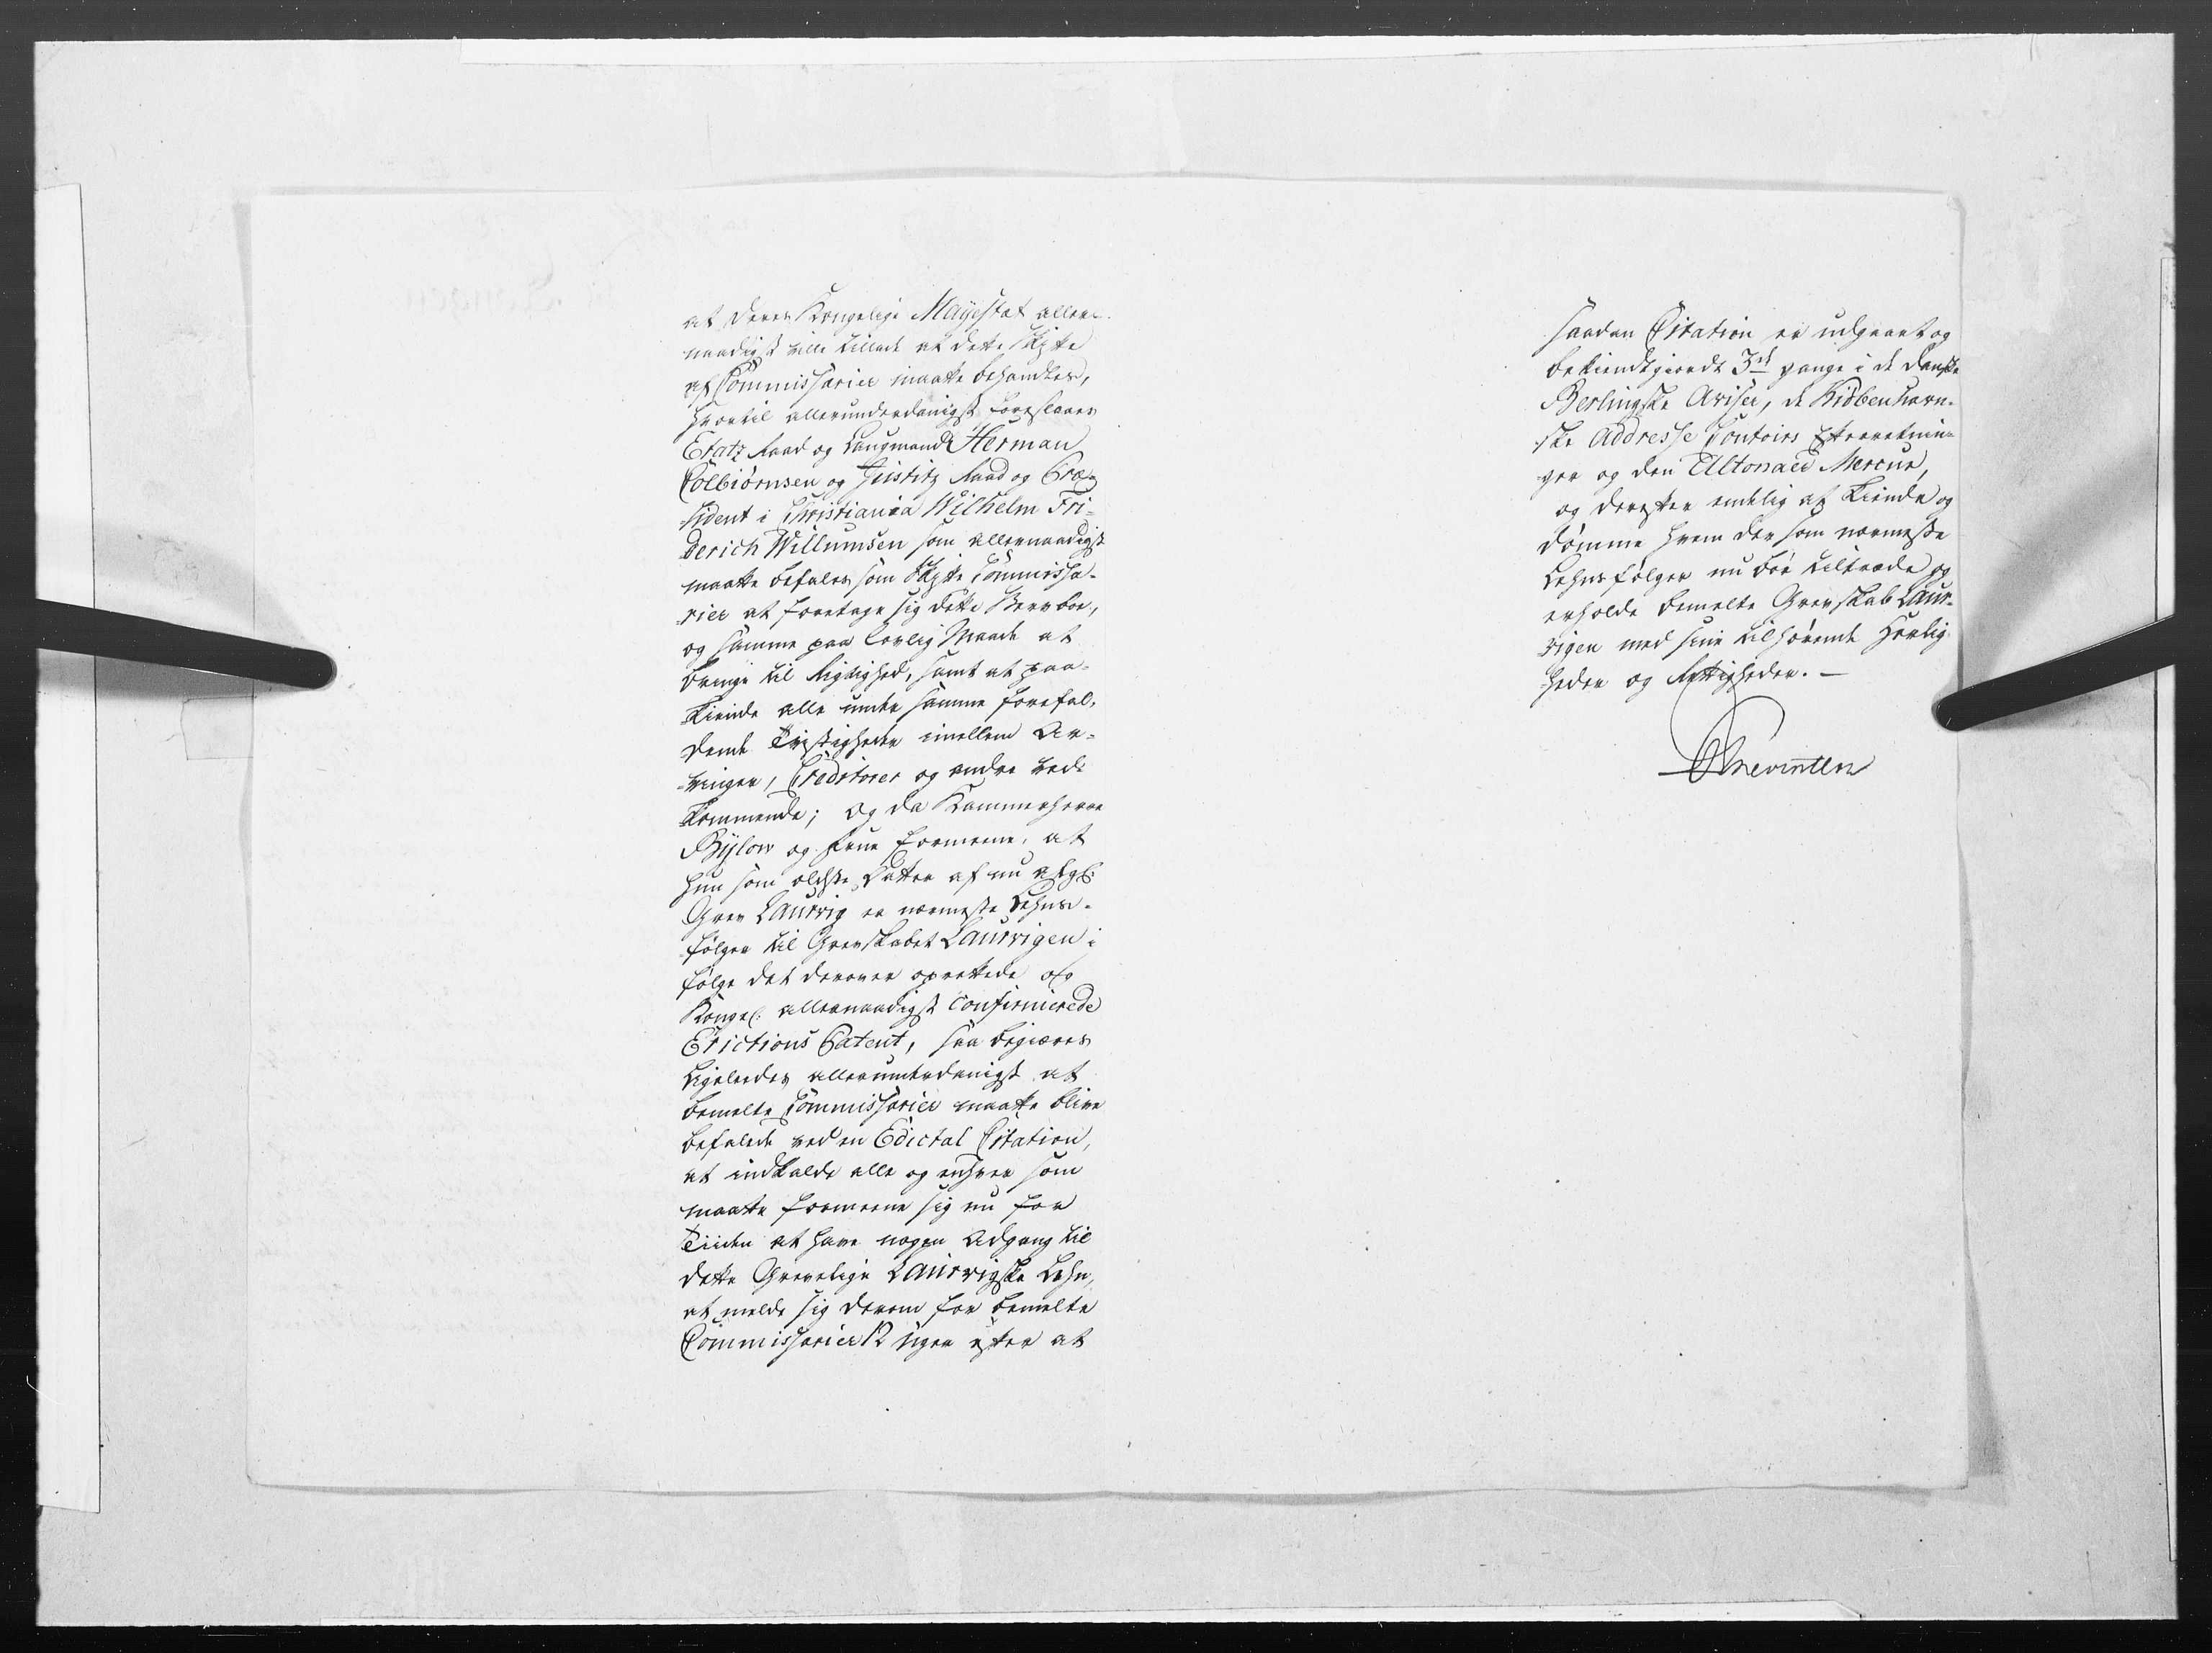 at Deres Kongelige Mayestæt aller-
naadigst ville tillade at dette Skifte
af Commissarier maatte behandles,
hvortil allerunderdanigst foreslaaes
Etatz Raad og Laugmand Herman
Colbiørnsen og Justitz Raad og Præ-
sident i Christiania Wilhelm Fri-
derich Willumsen som allernaadigst
maatte befales som Skifte Commissa-
rier at foretage sig dette Sterboe,
og samme paa lovlig Maade at
bringe til Rigtighed, samt at paa-
kiende alle under samme forefal-
dende Tvistigheder imellem Ar-
vinger, Creditorer og andre ved-
kommende; Og da Kammerherre
Bÿlow og Frue formeene, at
hun som ældste Datter af nu afg:
Grev Laurvig er nærmeste Lehns-
følger til Grevskabet Laurvigen i
følge det derover oprettede og
Kongel: allernaadigst Confirmerede
Erictions Patent, saa begiæres
ligeledes allerunderdanigst at
bemelte Commissarier maatte blive
befalede ved en Edictal Citation,
at indkalde alle og enhver som
maatte formeene sig nu for
Tiiden at have nogen Adgang til
dette Grevelige Laurvigske Lehn,
at melde sig derom for bemelte
Commissarier 12 Uger efter at
saadan Citation er udgaaet og
bekiendtgiordt 3de gange i de Danske
Berlingske Aviser, de Kiøbenhavn-
ske Addresse Contoirs Efterretnin-
ger og den Altonaer Mercur,
og derefter endelig at kiende og
dømme hvem der som nærmeste
Lehnsfølger nu bør tiltræde og
erholde bemelte Grevskab Laur-
vigen med sine tilhørende Herlig-
heder og Rettigheder. —